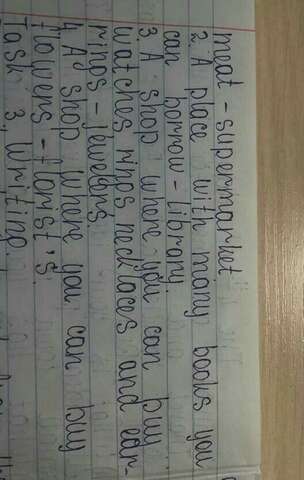 meat - supermarket
2. A place with many books you
can borrow - library
3. A shop where you can buy
watches, rings necklaces and ear-
rings - jewelers
4. A shop where you can buy
flowers - florist's.
Task 3. Writing